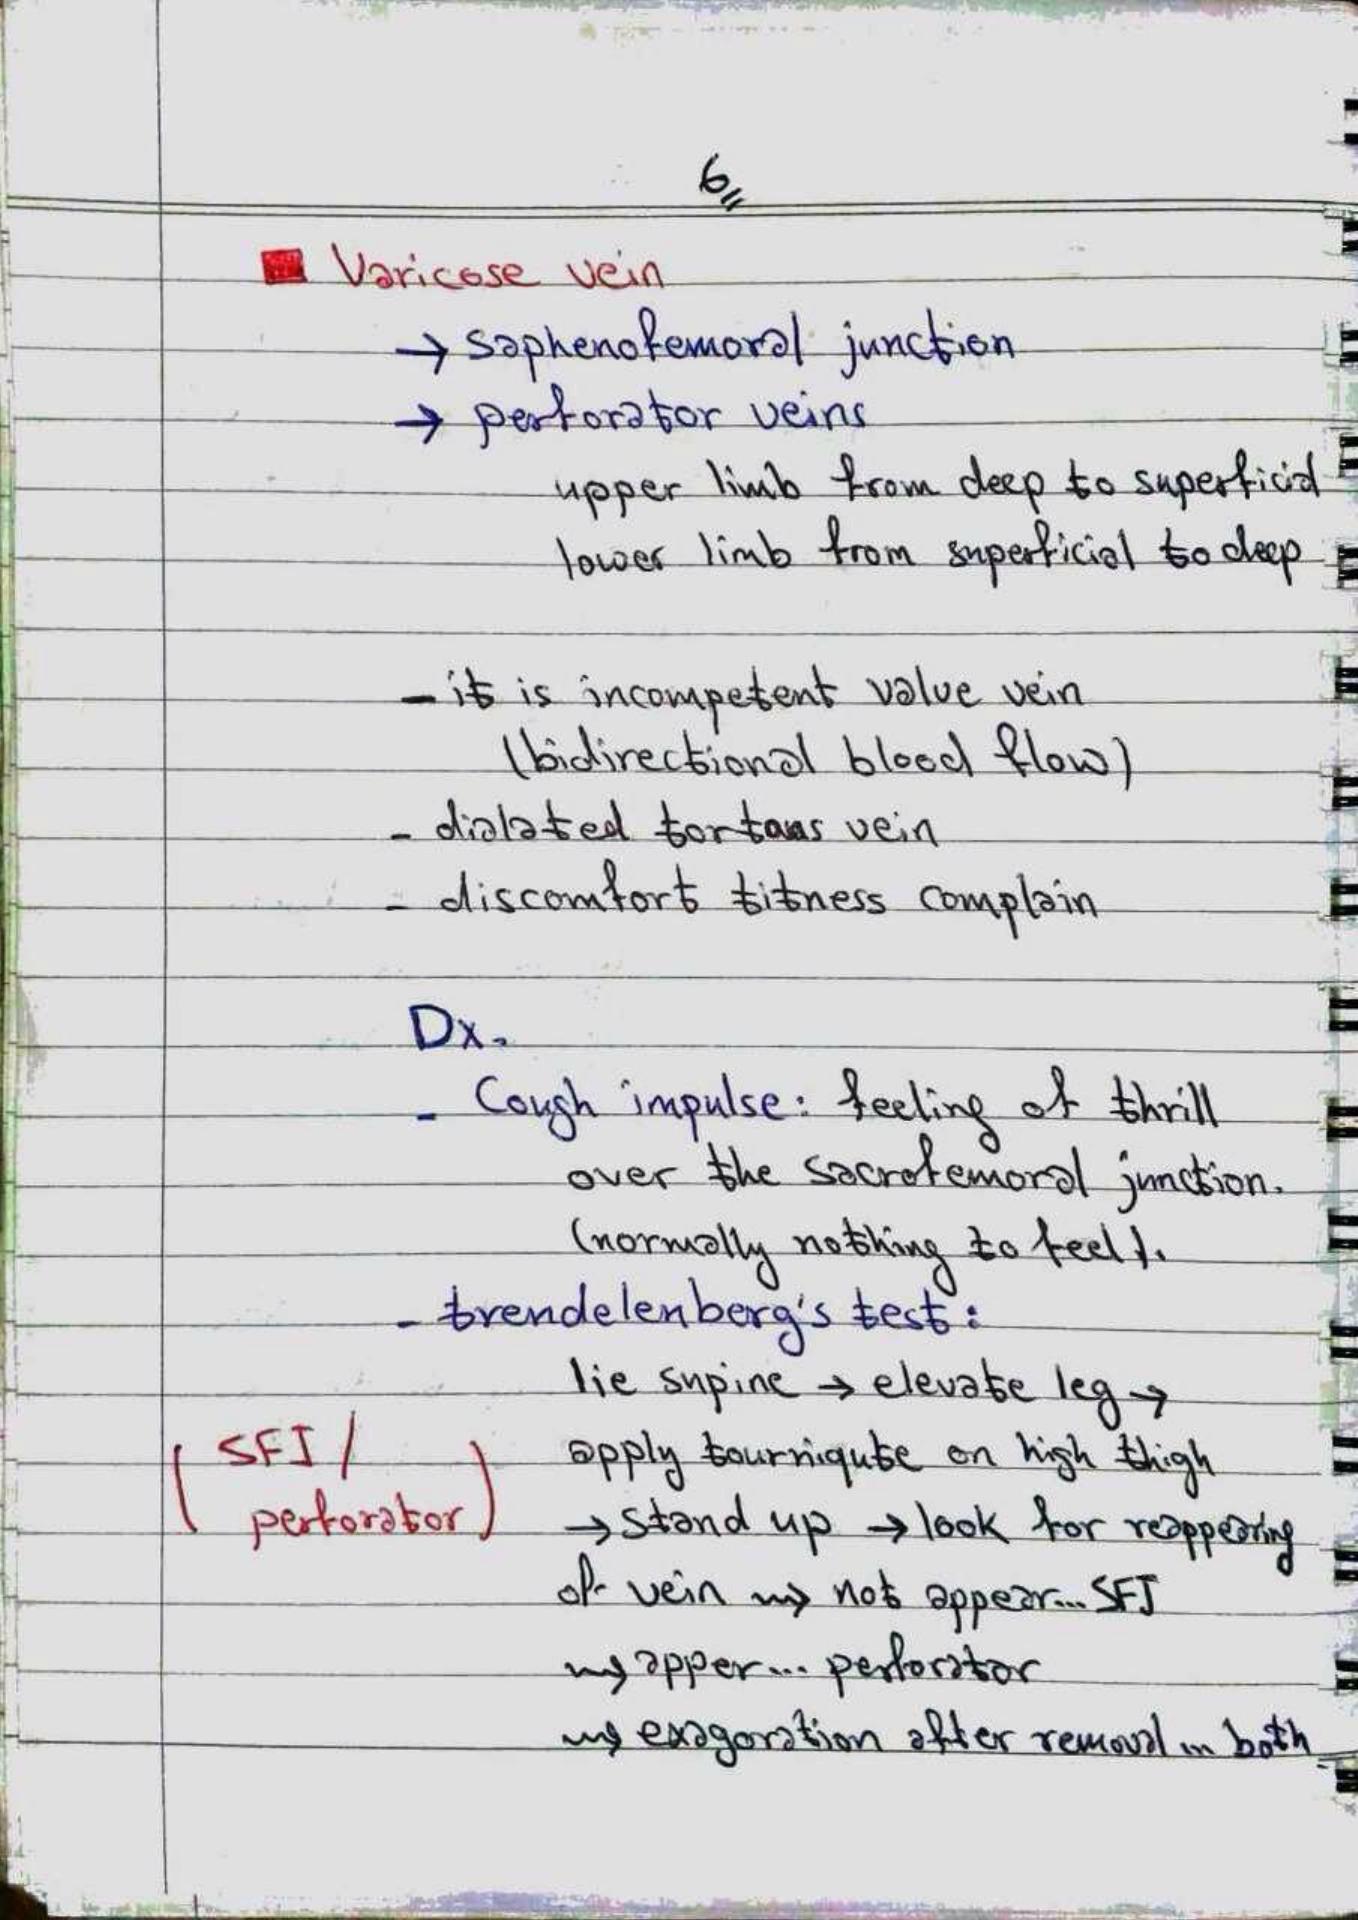 6
Varicose vein
→ saphenofemoral junction
→ perforator veins
upper limb from deep to superficial
lower limb from superficial to deep
- it is incompetent value vein
(bidirectional blood flow)
- dialated tortous vein
- discomfort titness complain
Dx.
- Cough impulse: feeling of thrill
over the sacrofemoral junction.
(normally nothing to feel).
- trendelenberg's test:
lie supine → elevate leg →
(SFJ / perforator)
apply tourniqute on high thigh
→ stand up → look for reappearing
of vein ⇝ not appear... SFJ
⇝ apper... perforator
⇝ exagoration after removal in both